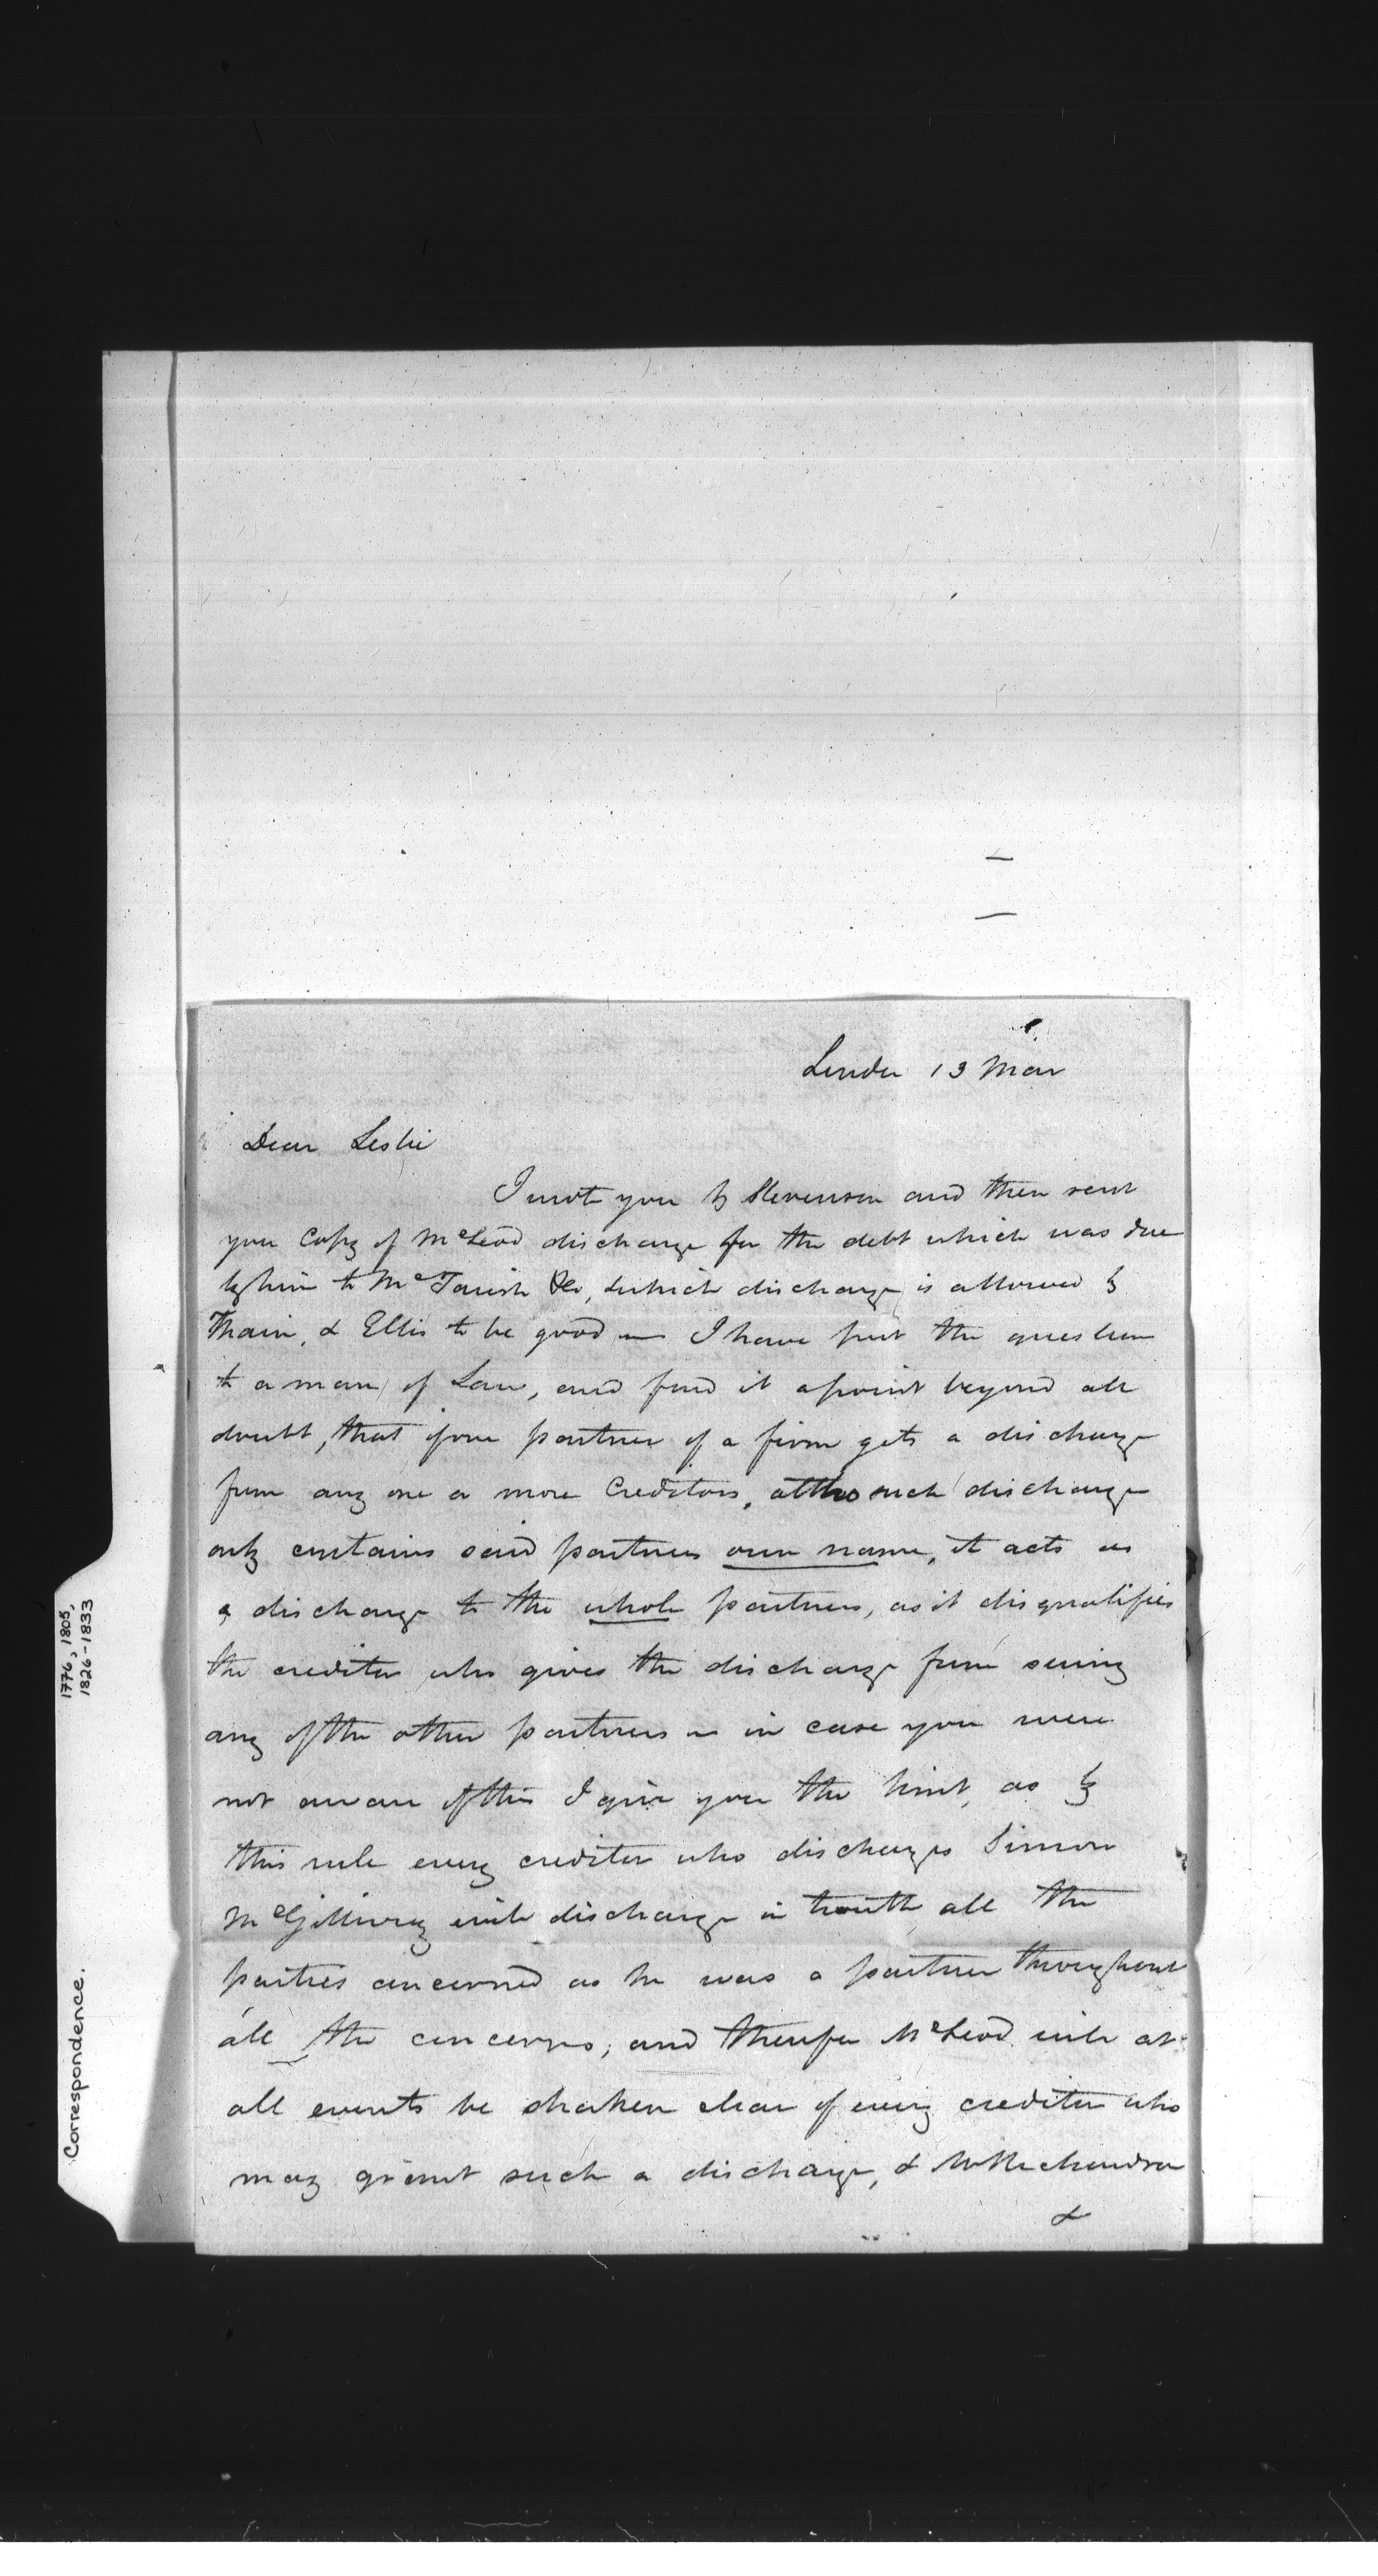 London 13 Mar
Dear Leslie
I wrote you by Stevenson and then sent
you Copy of McLeod discharge for the debt which was due
by him to McTavish &Co, which discharge is allowed by
Thain, & Ellis to be good — I have put the question
to a man of Law, and find it a point beyond all
doubt, that if one partner of a firm gets a discharge
from any one or more Creditors, altho such discharge
only contains said partners own name, it acts as
a discharge to the whole partners, as it disqualifies
the creditor who gives the discharge from suing
any of the other partners — in case you were
not aware of this I give you the hint, as by
this rule every creditor who discharges Simon
McGillivray will discharge in truth all the
parties concerned as he was a partner throughout
all the concerns, and therefor McLeod will at
all events be shaken clear of every creditor who
may grant such a discharge, &
&
Correspondence.
1776, 1805,
1826-1833